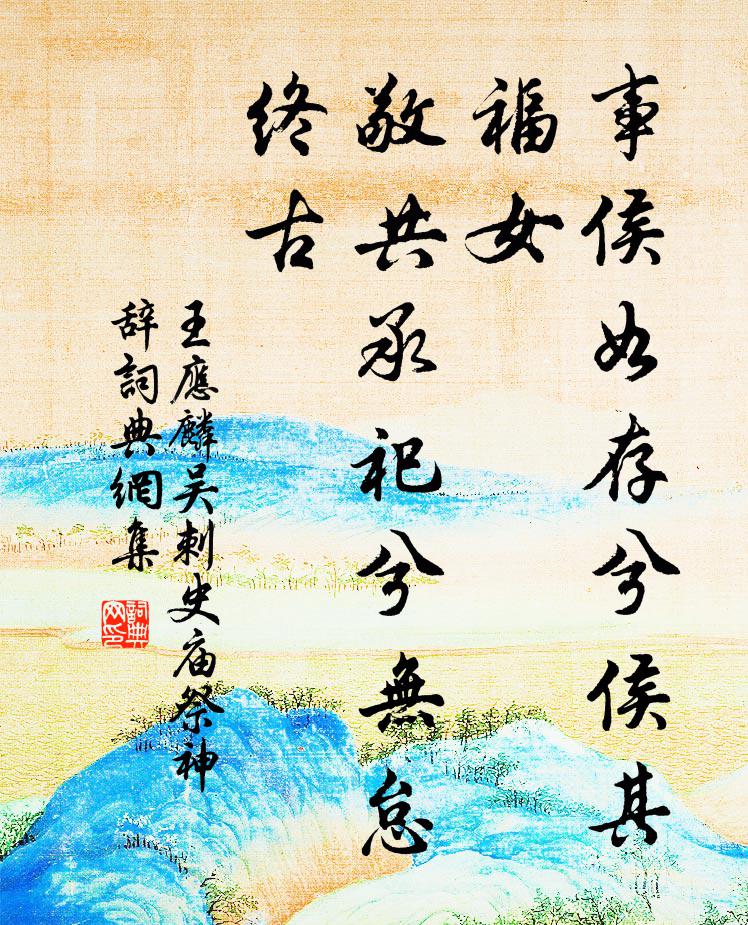 事侯如存兮侯其
福女
敬共承祀兮無怠
終古
王應麟吴刺史庙祭神
辞詞典網集
詞典
网印